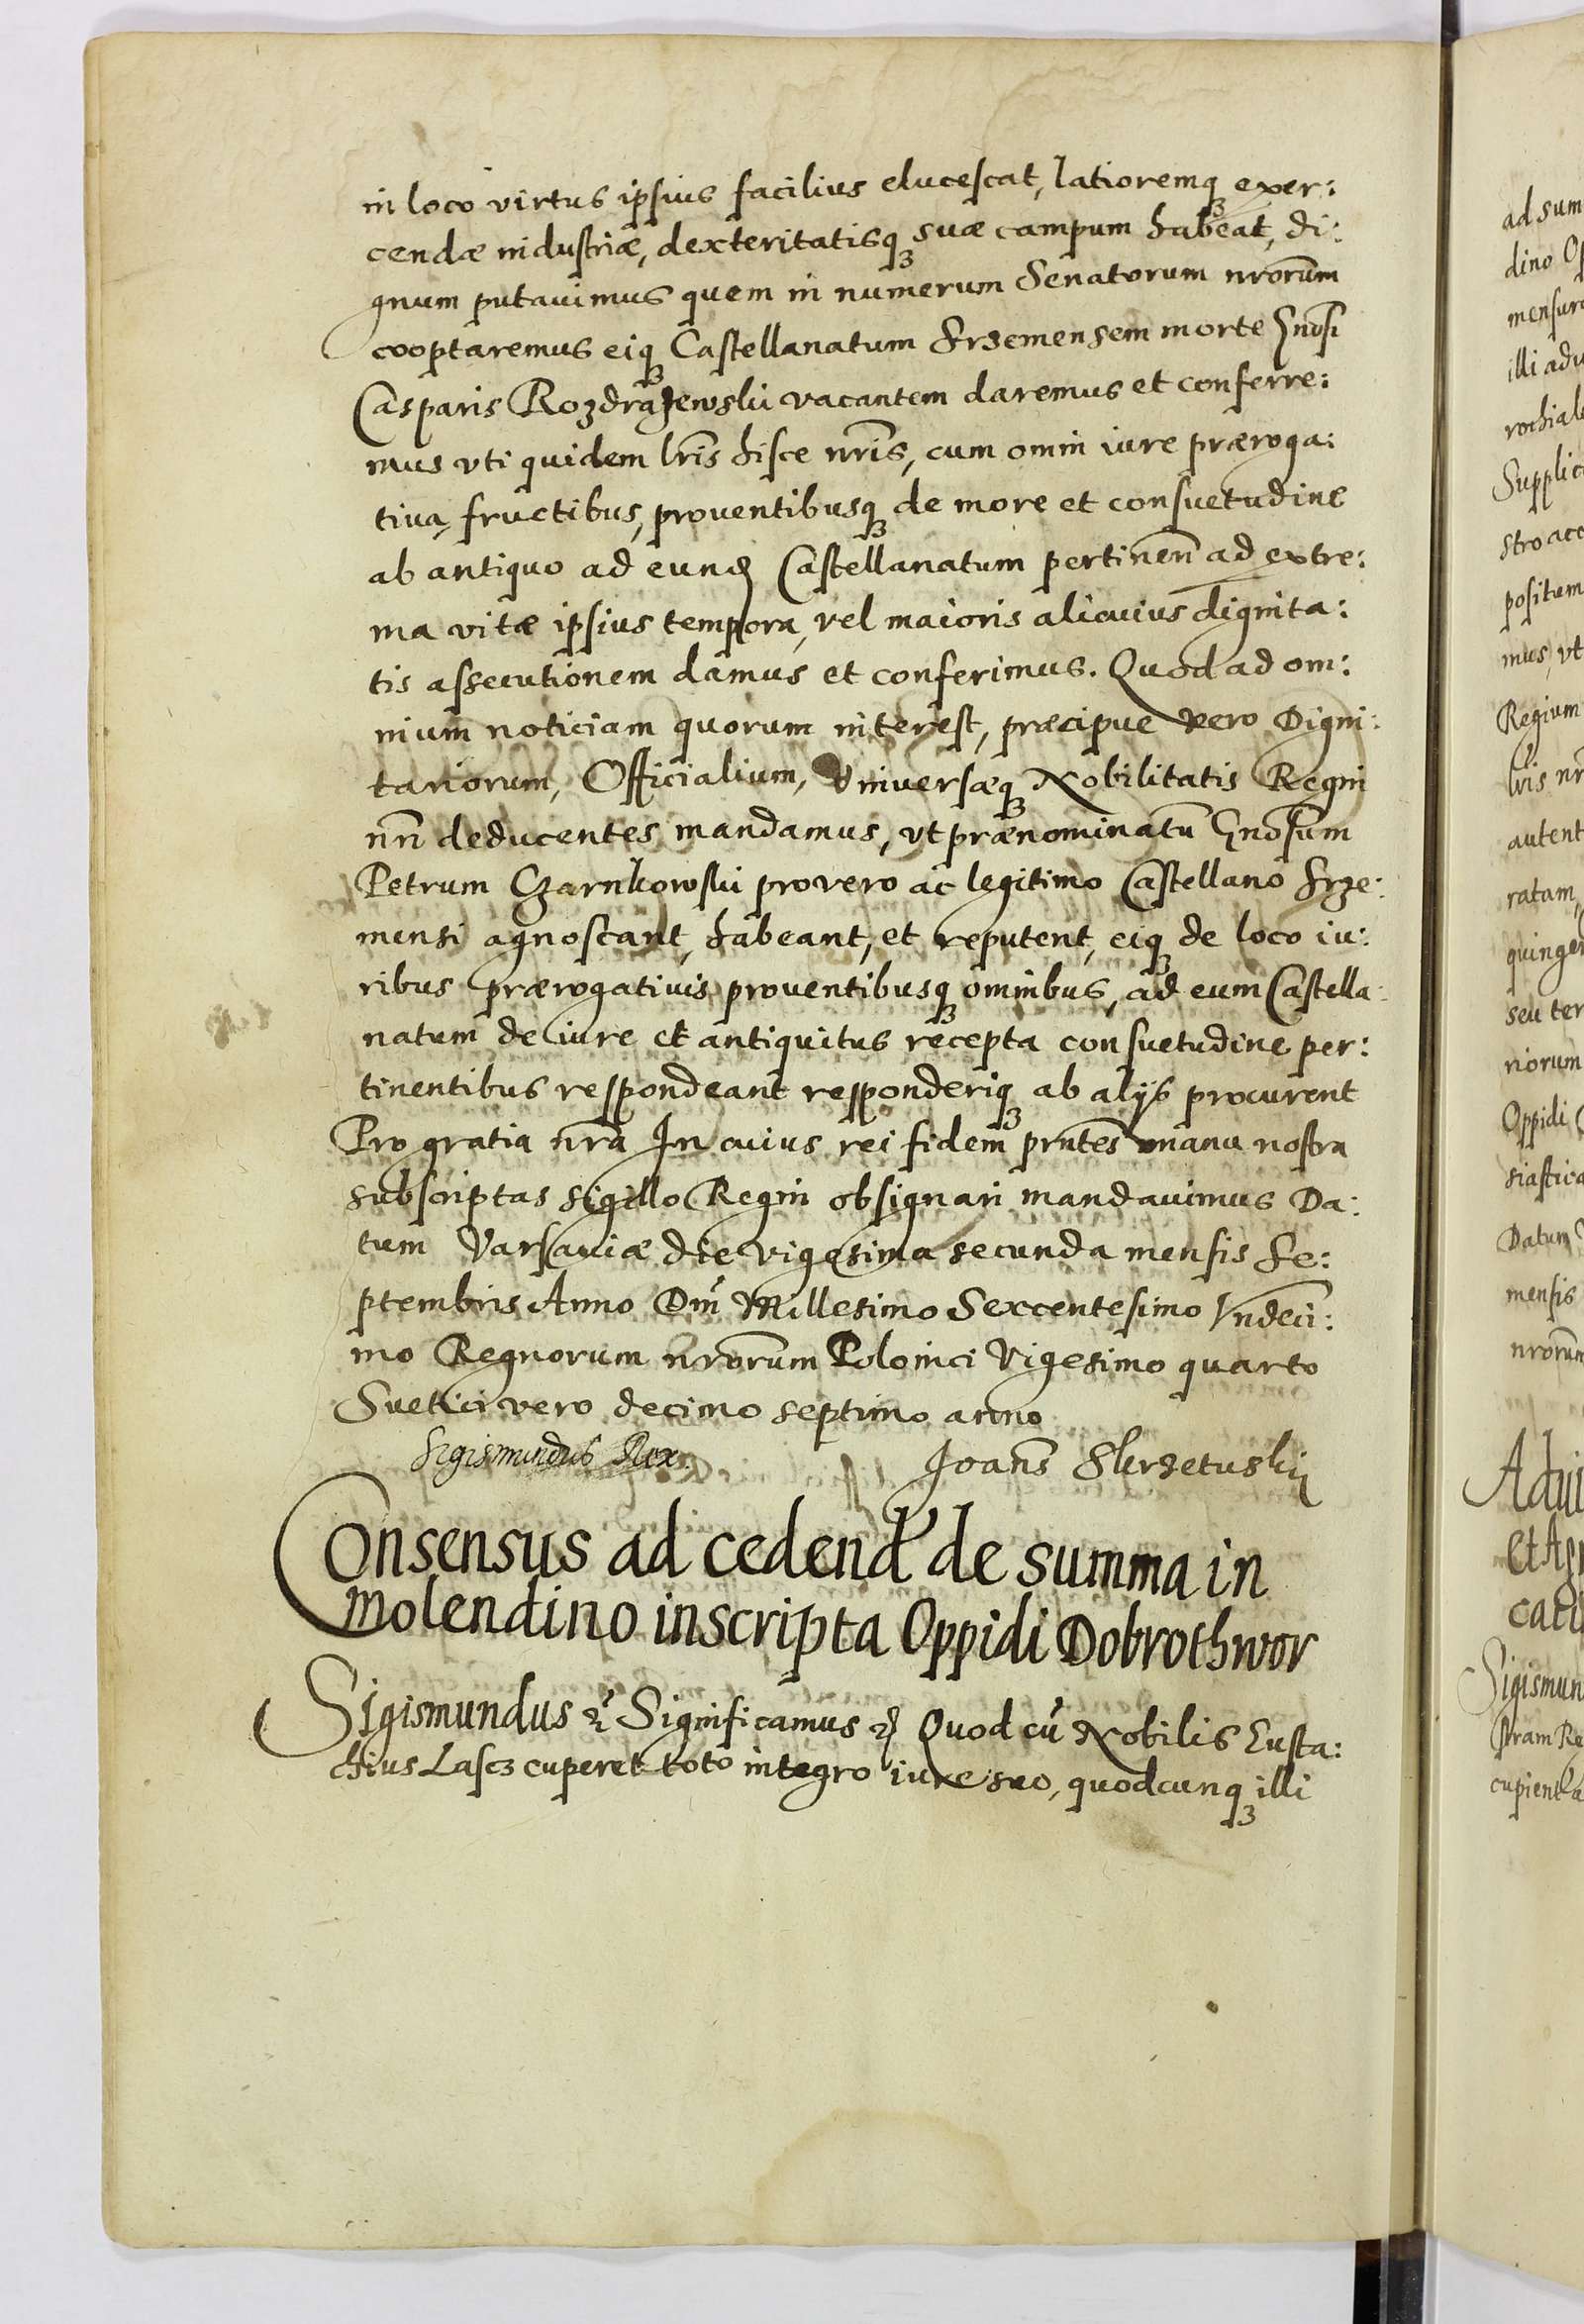 in loco virtus ipsius facilius elucescat, latioremq₃ exer:
cendæ industriæ, dexteritatisq₃ suæ campum habeat, di:
gnum putavimus quem in numerum Senatorum nrorum
cooptaremus eiq₃ Castellanatum Srzemensem morte Gnosi
Casparis Rozdrażewski vacantem daremus et conferre:
mus vti quidem lris hisce nris, cum omni iure præroga:
tiva, fructibus, proventibusq₃ de more et consuetudine
ab antiquo ad eund Castellanatum pertinen ad extre:
ma vitæ ipsius tempora, vel maioris alicuius dignita:
tis assecutionem damus et conferimus. Quod ad om:
nium noticiam quorum interest, præcipue vero Digni:
tariorum, Officialium, Vniversæq₃ Nobilitatis Regni
nri deducentes mandamus, vt prænominatū Gnosum
Petrum Czarnkowski pro vero ac legitimo Castellano Srze:
mensi agnoscant, habeant, et reputent, eiq₃ de loco iu:
ribus prærogativis proventibusq₃ omnibus, ad eum Castella:
natum de iure et antiquitus recepta consuetudine per:
tinentibus respondeant responderiq₃ ab alijs procurent
Pro gratia nra In cuius rei fidem prntes manu nostra
subscriptas sigillo Regni obsignari mandavimus Da:
tum Varsaviæ die vigesima secunda mensis Se:
ptembris Anno Dni Millesimo Sexcentesimo Vndeci:
mo Regnorum nrorum Polonici Vigesimo quarto
Suetici vero decimo septimo anno
Sigismundus Rex. Joans Skrzetuskij
Consensus ad cedend de summa in
molendino inscripta Oppidi Dobrothwor
Sigismundus &c Significamus &c Quod cū Nobilis Eusta:
chius Lascz cuperet toto integro iure suo, quodcunq₃ illi
ad sum
dino Op
mensur
illi adv
rochial
Supplic
stro acc
positum
mus, vt
Regium
lris nr
autent
ratam,
quinge
seu ter
riorum
Oppidi
siastica
Datum
mensis
nrorum
Advi
Et Ag
cati
Sigismun
stram Re
cupient